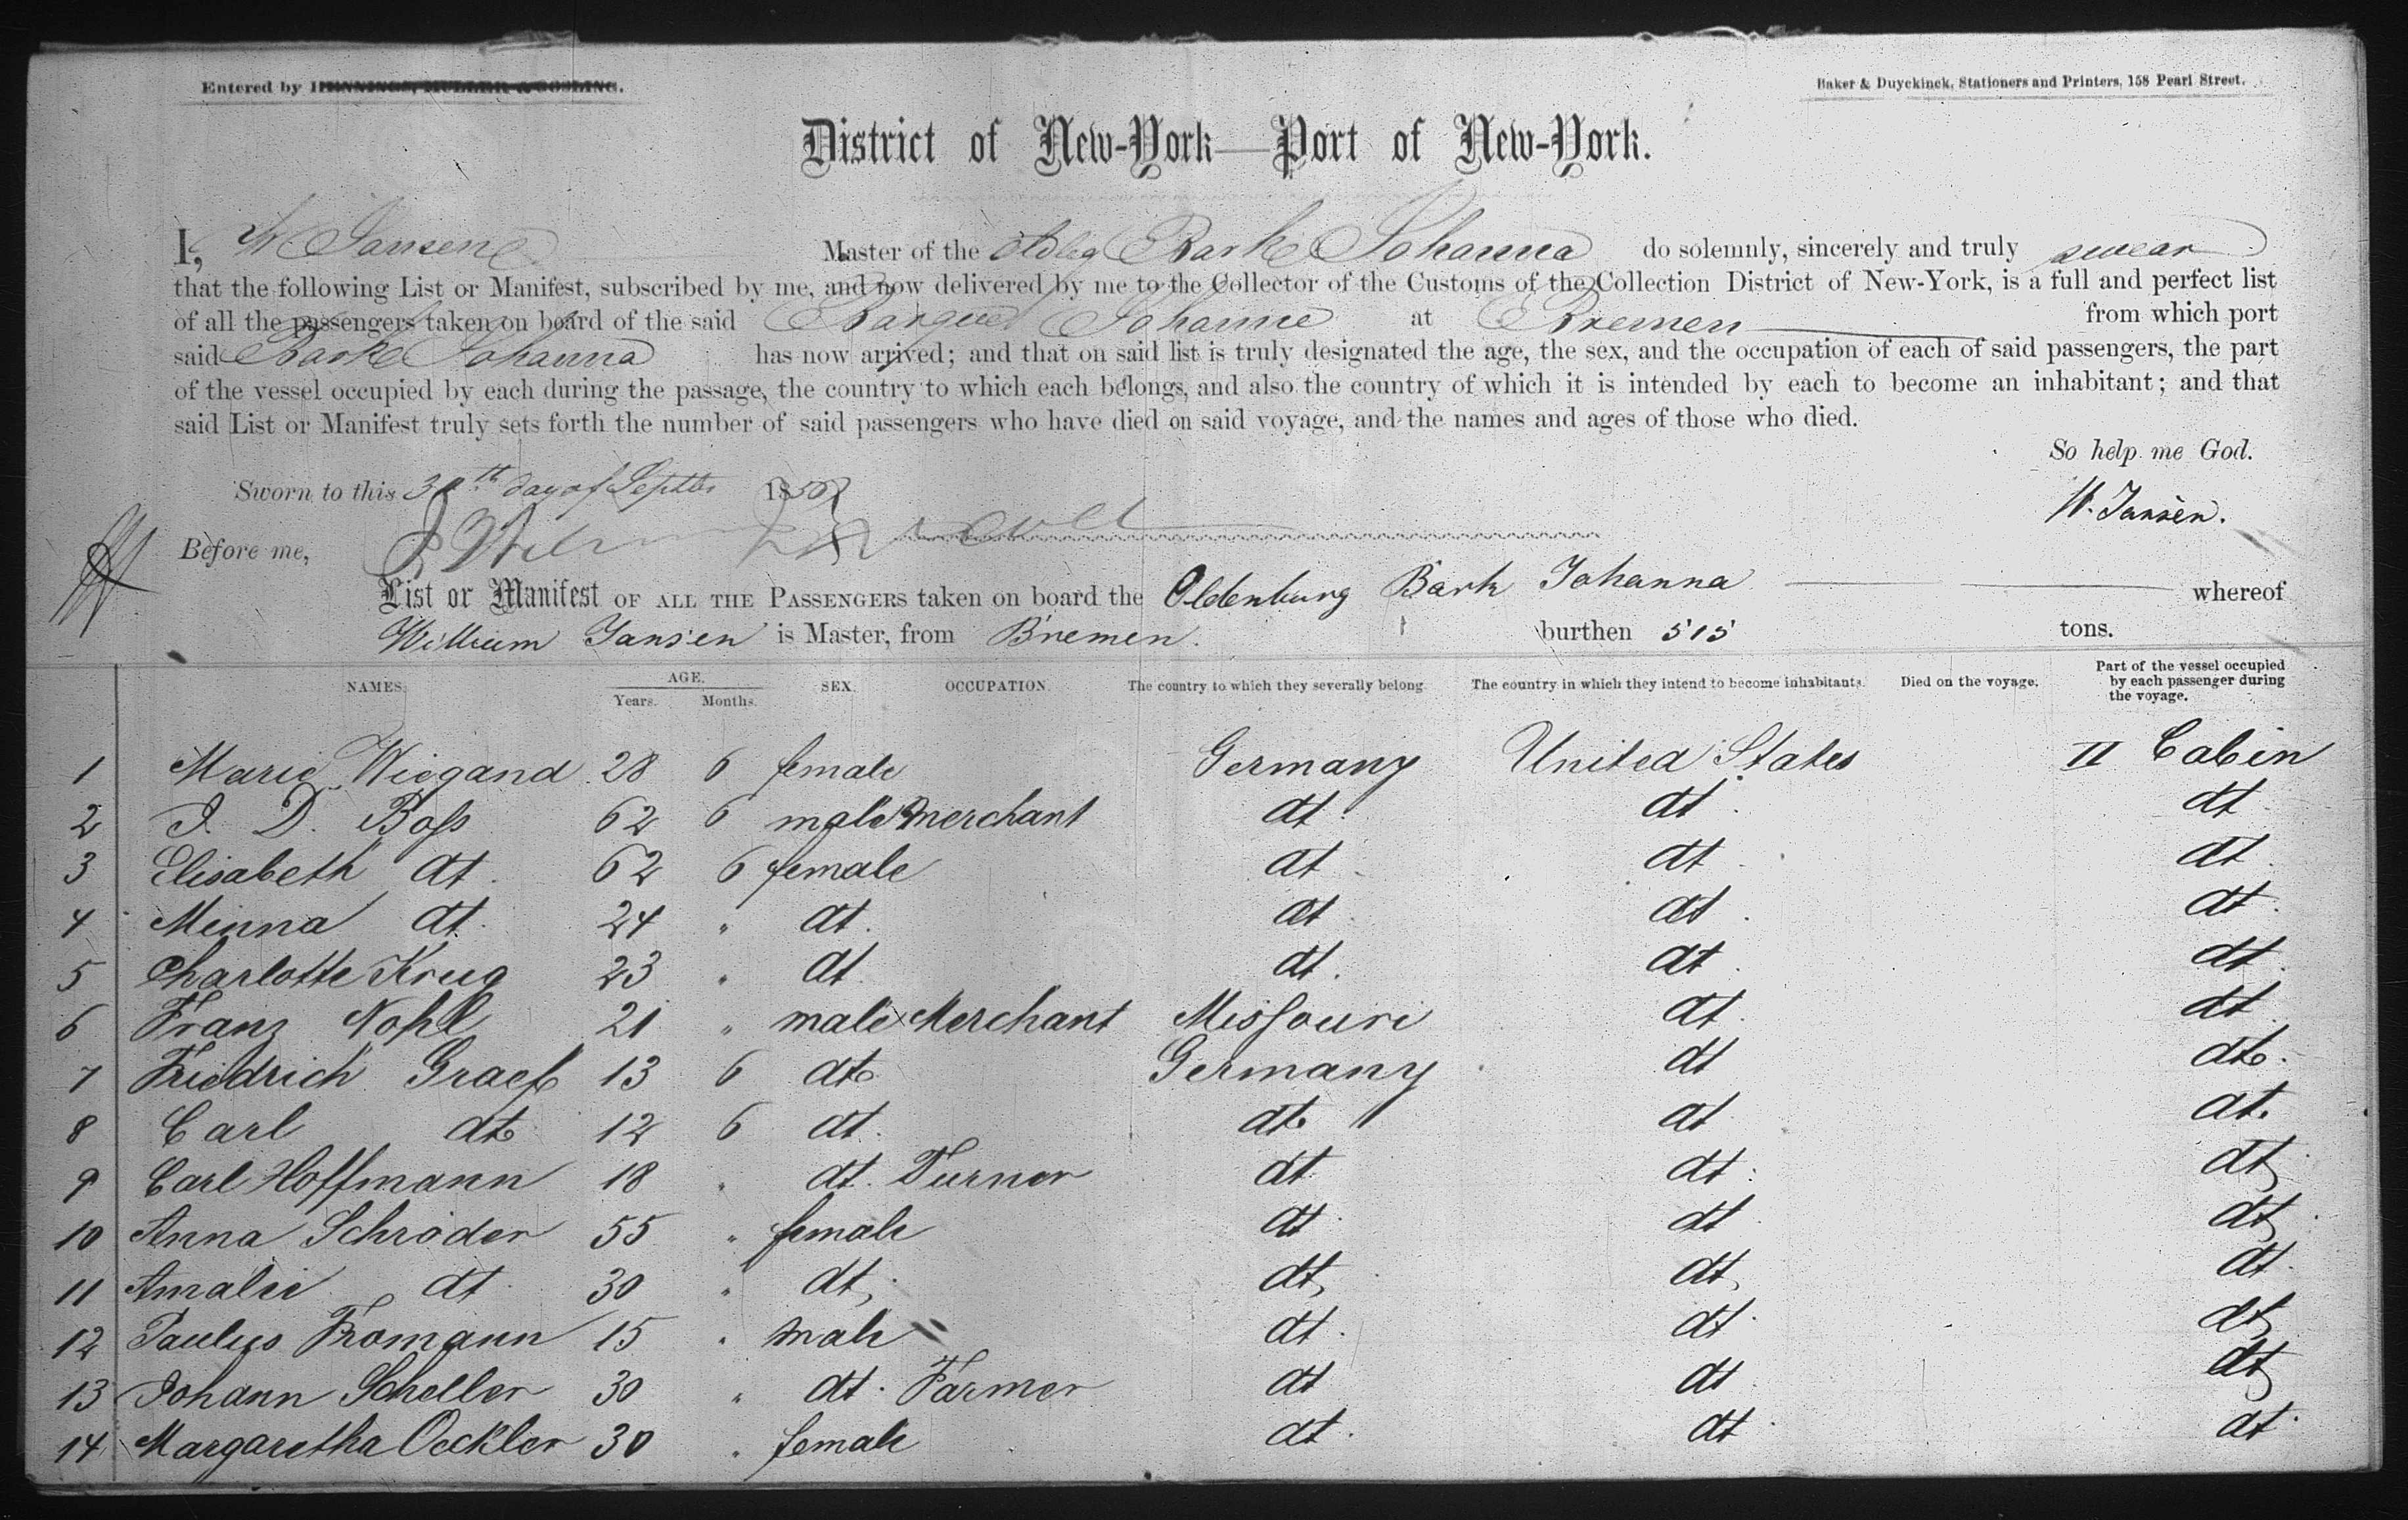 Entered by
Baker & Duyckinck, Stationers and Printers, 158 Pearl Street.
District of New-York—Port of New-York.
I, W Jansen Master of the Oldbg Bark Johanna do solemnly, sincerely and truly swear
that the following List or Manifest, subscribed by me, and now delivered by me to the Collector of the Customs of the Collection District of New-York, is a full and perfect list
of all the passengers taken on board of the said Barque Johanne at Bremen from which port
said Bark Johanna has now arrived; and that on said list is truly designated the age, the sex, and the occupation of each of said passengers, the part
of the vessel occupied by each during the passage, the country to which each belongs, and also the country of which it is intended by each to become an inhabitant; and that
said List or Manifest truly sets forth the number of said passengers who have died on said voyage, and the names and ages of those who died.
So help me God.
Sworn to this 30th day of Septbr 185
W. Jansen.
Before me,
List or Manifest OF ALL THE PASSENGERS taken on board the Oldenburg Bark Johanna whereof
Willium Jansen is Master, from Bremen. burthen 515 tons.
NAMES. AGE. Years. Months. SEX. OCCUPATION. The country to which they severally belong. The country in which they intend to become inhabitants. Died on the voyage. Part of the vessel occupied by each passenger during the voyage.
1 Marie Wiegand 28 6 female Germany United States II Cabin
2 J. D. Boss 62 6 male Merchant dt dt dt
3 Elisabeth dt 62 6 female dt dt dt
4 Minna dt 24 " dt. dt dt dt
5 Charlotte Krug 23 " dt dt. dt dt
6 Franz Nohl 21 " male Merchant Missouri dt dt
7 Friedrich Graef 13 6 dto Germany dt dto.
8 Carl dto 12 6 dt. dto dt dt.
9 Carl Hoffmann 18 " dt. Turner dt dt. dt
10 Anna Schröder 55 " female dt dt dt
11 Amalie dt 30 " dt. dt dt dt.
12 Paulus Fromann 15 " male dt. dt dt
13 Johann Scheller 30 " dt. Farmer dt dt dt
14 Margaretha Oeckler 30 " female dt. dt dt